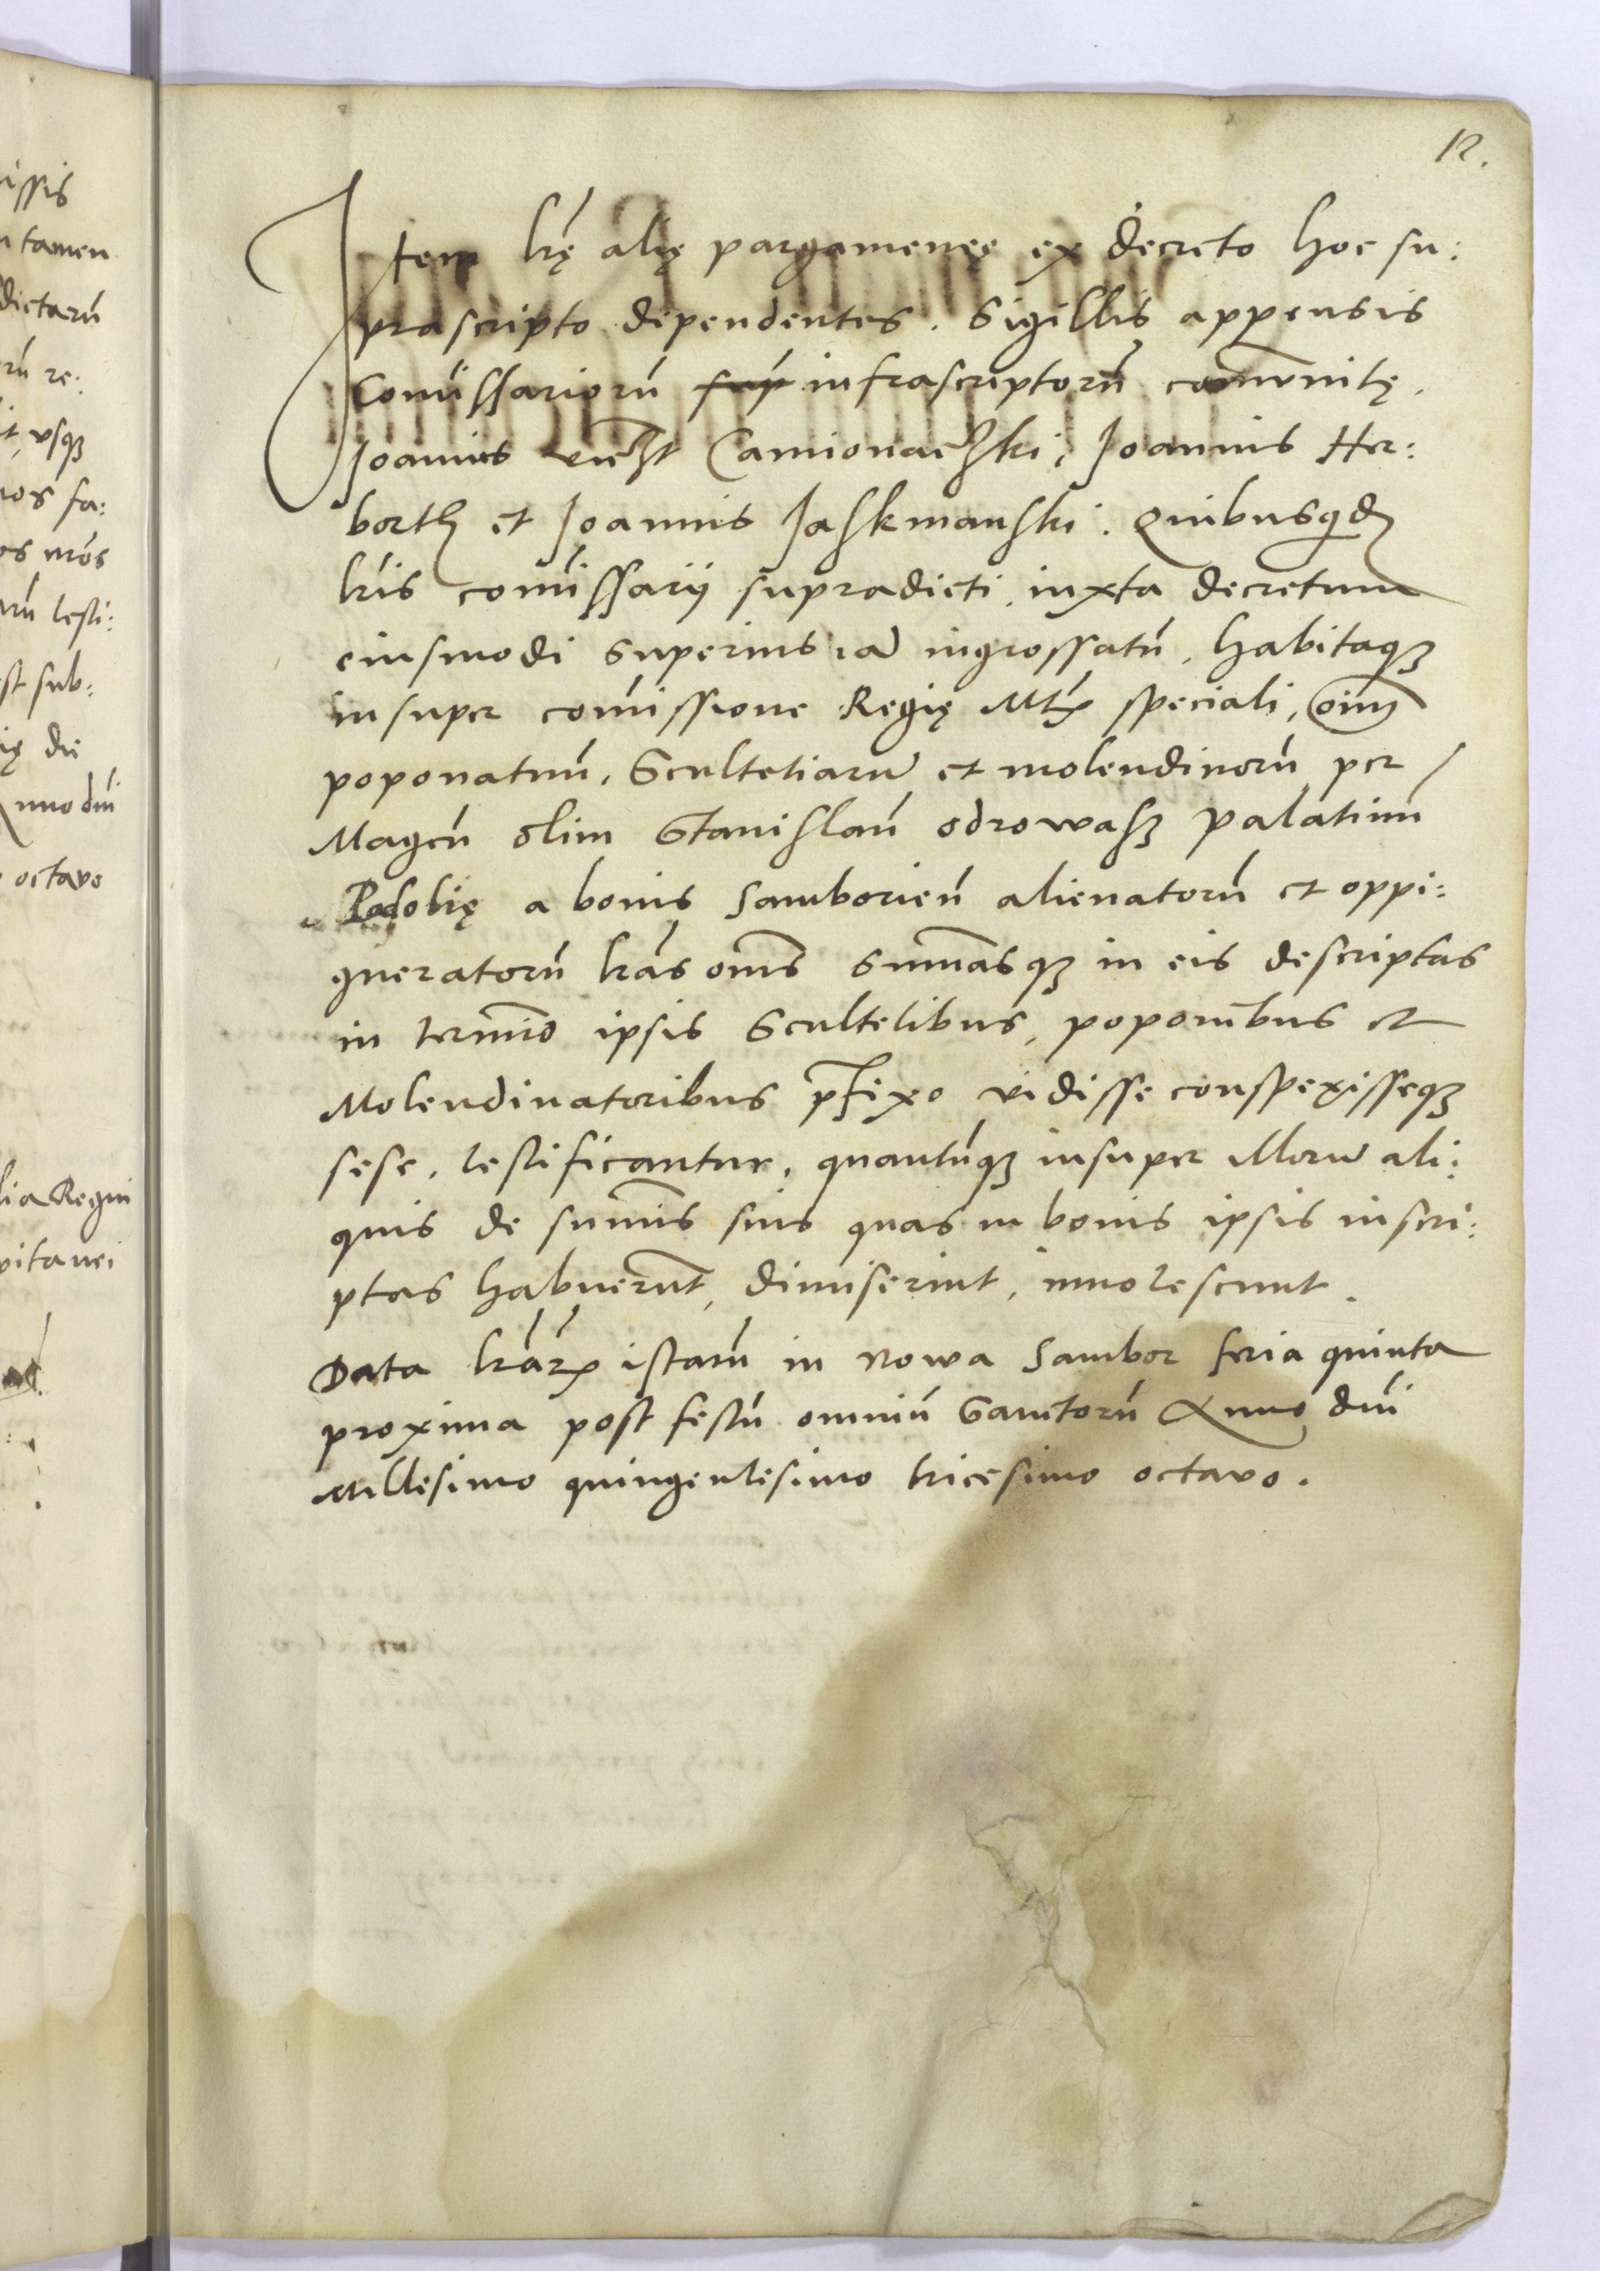 12.
Item lrę alię pargamenęe ex decreto hoc su:
prascripto dependentes. Sigillis appensis
Comissariorū infrascriptorū comunitę.
Joannis Camionaczski, Joannis Her:
borth et Joannis Jaskmanski. Quibusqdē
lris comissarij supradicti, iuxta decretum
eiusmodi superius iā ingrossatū, habitaqȝ
insuper comissione Regię Mtis speciali, oīm
poponatuū, Scultetiarū et molendinorū per
Magcū olim Stanislaū odrowasȝ palatinū
Podolię a bonis Samborieñ alienatorū et oppi:
gneratorū lrās oēs sūmasqȝ in eis descriptas
in termīo ipsis Scultetibus, poponibus et
Molendinatoribus p̄fixo vidisse conspexisseqȝ
sese, testificantur, quantūqȝ insuper illorū ali:
quis de sūmis suis quas in bonis ipsis inscri:
ptas habuerūt, dimiserint, innotescunt.
Data lrārȝ istarū in Nowa Sambor feria quinta
proxima post festū omniū Sanctorū Anno dni
Millesimo quingentesimo tricesimo octavo.
issis
tamen
dictarū
rū re:
t, vsqȝ
nos fa:
os nrōs
arū testi:
st sub:
ię die
Anno dni
octavo
lia Regni
pitanei